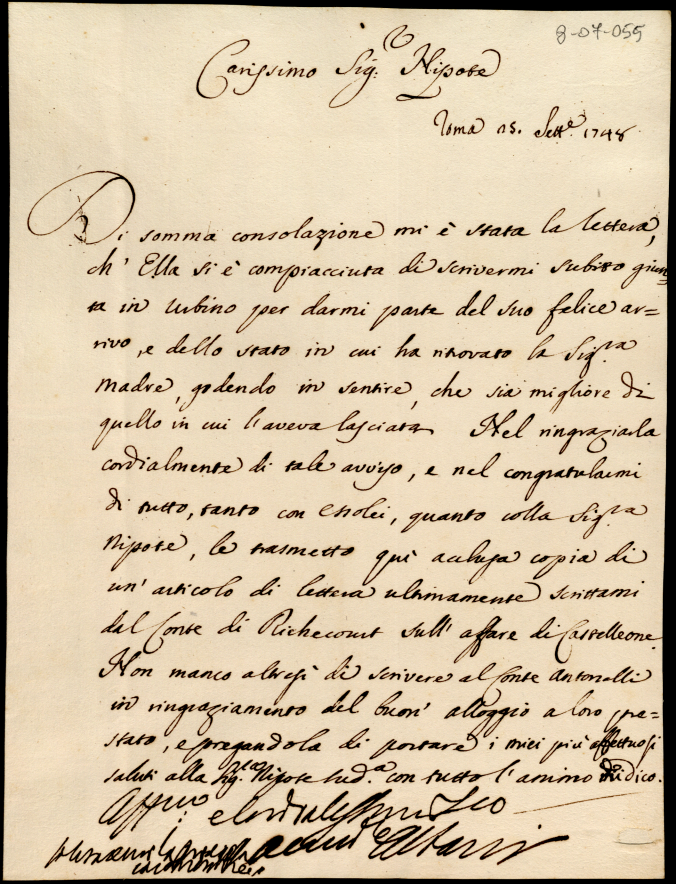 8-07-055
Carissimo Sig.r Nipote
Roma 15. Sett.e 1748
Di somma consolazione mi è stata la lettera,
ch' Ella si è compiacciuta di scrivermi subitto giun=
ta in Urbino per darmi parte del suo felice ar=
rivo, e dello stato in cui ha ritrovato la Sig.ra
Madre, godendo in sentire, che sia migliore di
quello in cui l'aveva lasciata. Nel ringraziarla
cordialmente di tale avviso, e nel congratularmi
di tutto, tanto con essolei, quanto colla Sig.ra
Nipote, le trasmetto quì acclusa copia di
un' articolo di lettera ultimamente scrittami
dal Conte di Richecourt sull' affare di Castelleone.
Non manco altresì di scrivere al Conte Antonelli
in ringraziamento del buon' alloggio a loro pre=
stato, e pregandola di portare i miei più affettuosi
saluti alla Sig.ra Nipote sud.a con tutto l'animo
Aff.mo e Cordialissimo Zio